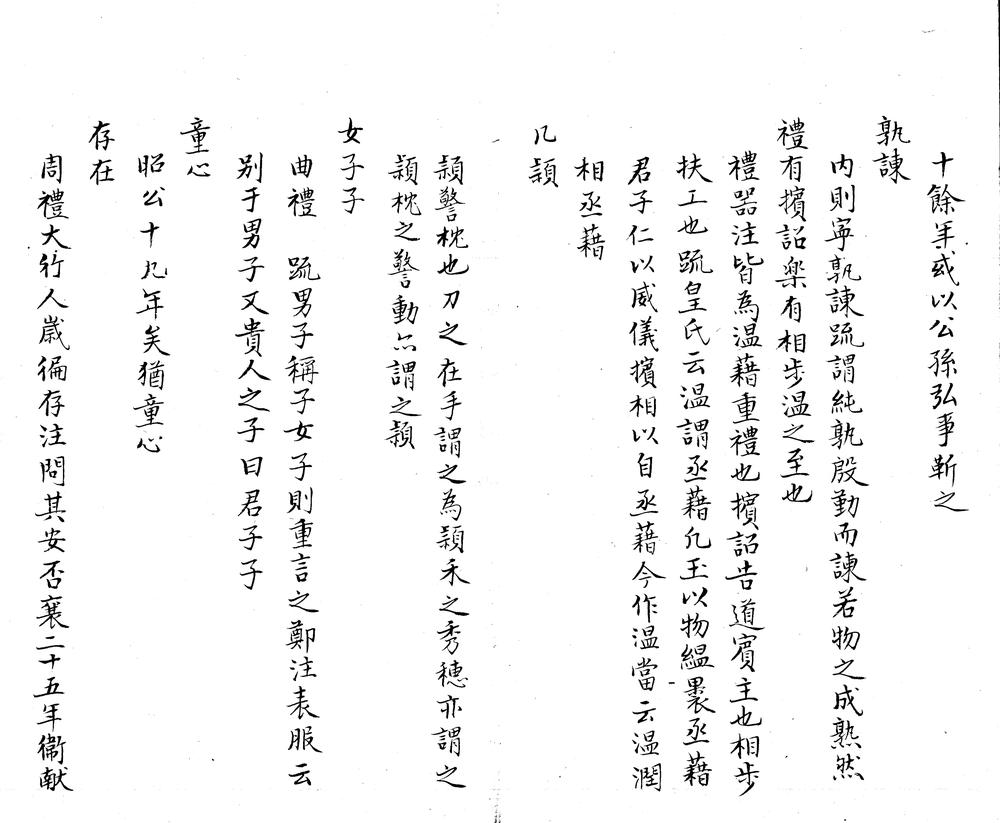 十餘年或以公孫弘事靳之
孰諫
內則寧孰諫疏謂純孰殷勤而諫若物之成熟然
禮有擯詔楽有相步温之至也
禮器注皆為温藉重禮也擯詔告道賓主也相步
扶工也疏皇氏云温謂丞藉凡玉以物緼裹丞藉
君子仁以威儀擯相以自丞藉今作温當云温潤
相丞藉
几熲
熲警枕也刀之在手謂之為熲禾之秀穗亦謂之
熲枕之警動亦謂之熲
女子子
曲禮 疏男子稱子女子則重言之鄭注表服云
別于男子又貴人之子曰君子子
童心
昭公十九年矣猶童心
存在
周禮大行人歲徧存注問其安否襄二十五年衞献